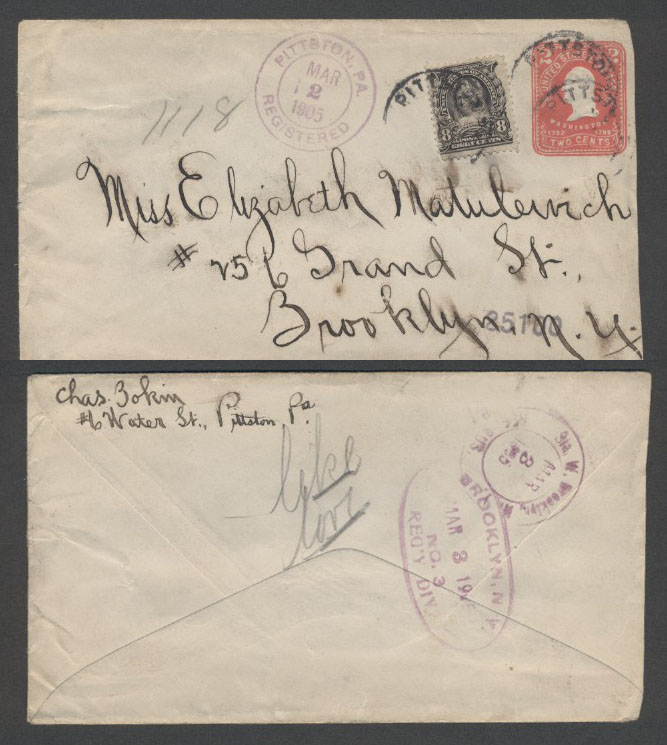 PITTSTON, PA.
MAR
2
1905
REGISTERED
1118
PITT
8 8
EIGHT CENTS
PITTSTON
PITTST
2 2
UNITED STATES
WASHINGTON
1732 1799
TWO CENTS
Miss Elizabeth Matulewich
# 256 Grand St.,
Brooklyn, N.Y.
85100
Chas. Zokin
#6 Water St., Pittston Pa.
W. Brooklyn,
MAR
3
BROOKLYN, N.Y.
MAR 3 19
NO. 3
REG'Y DIV.